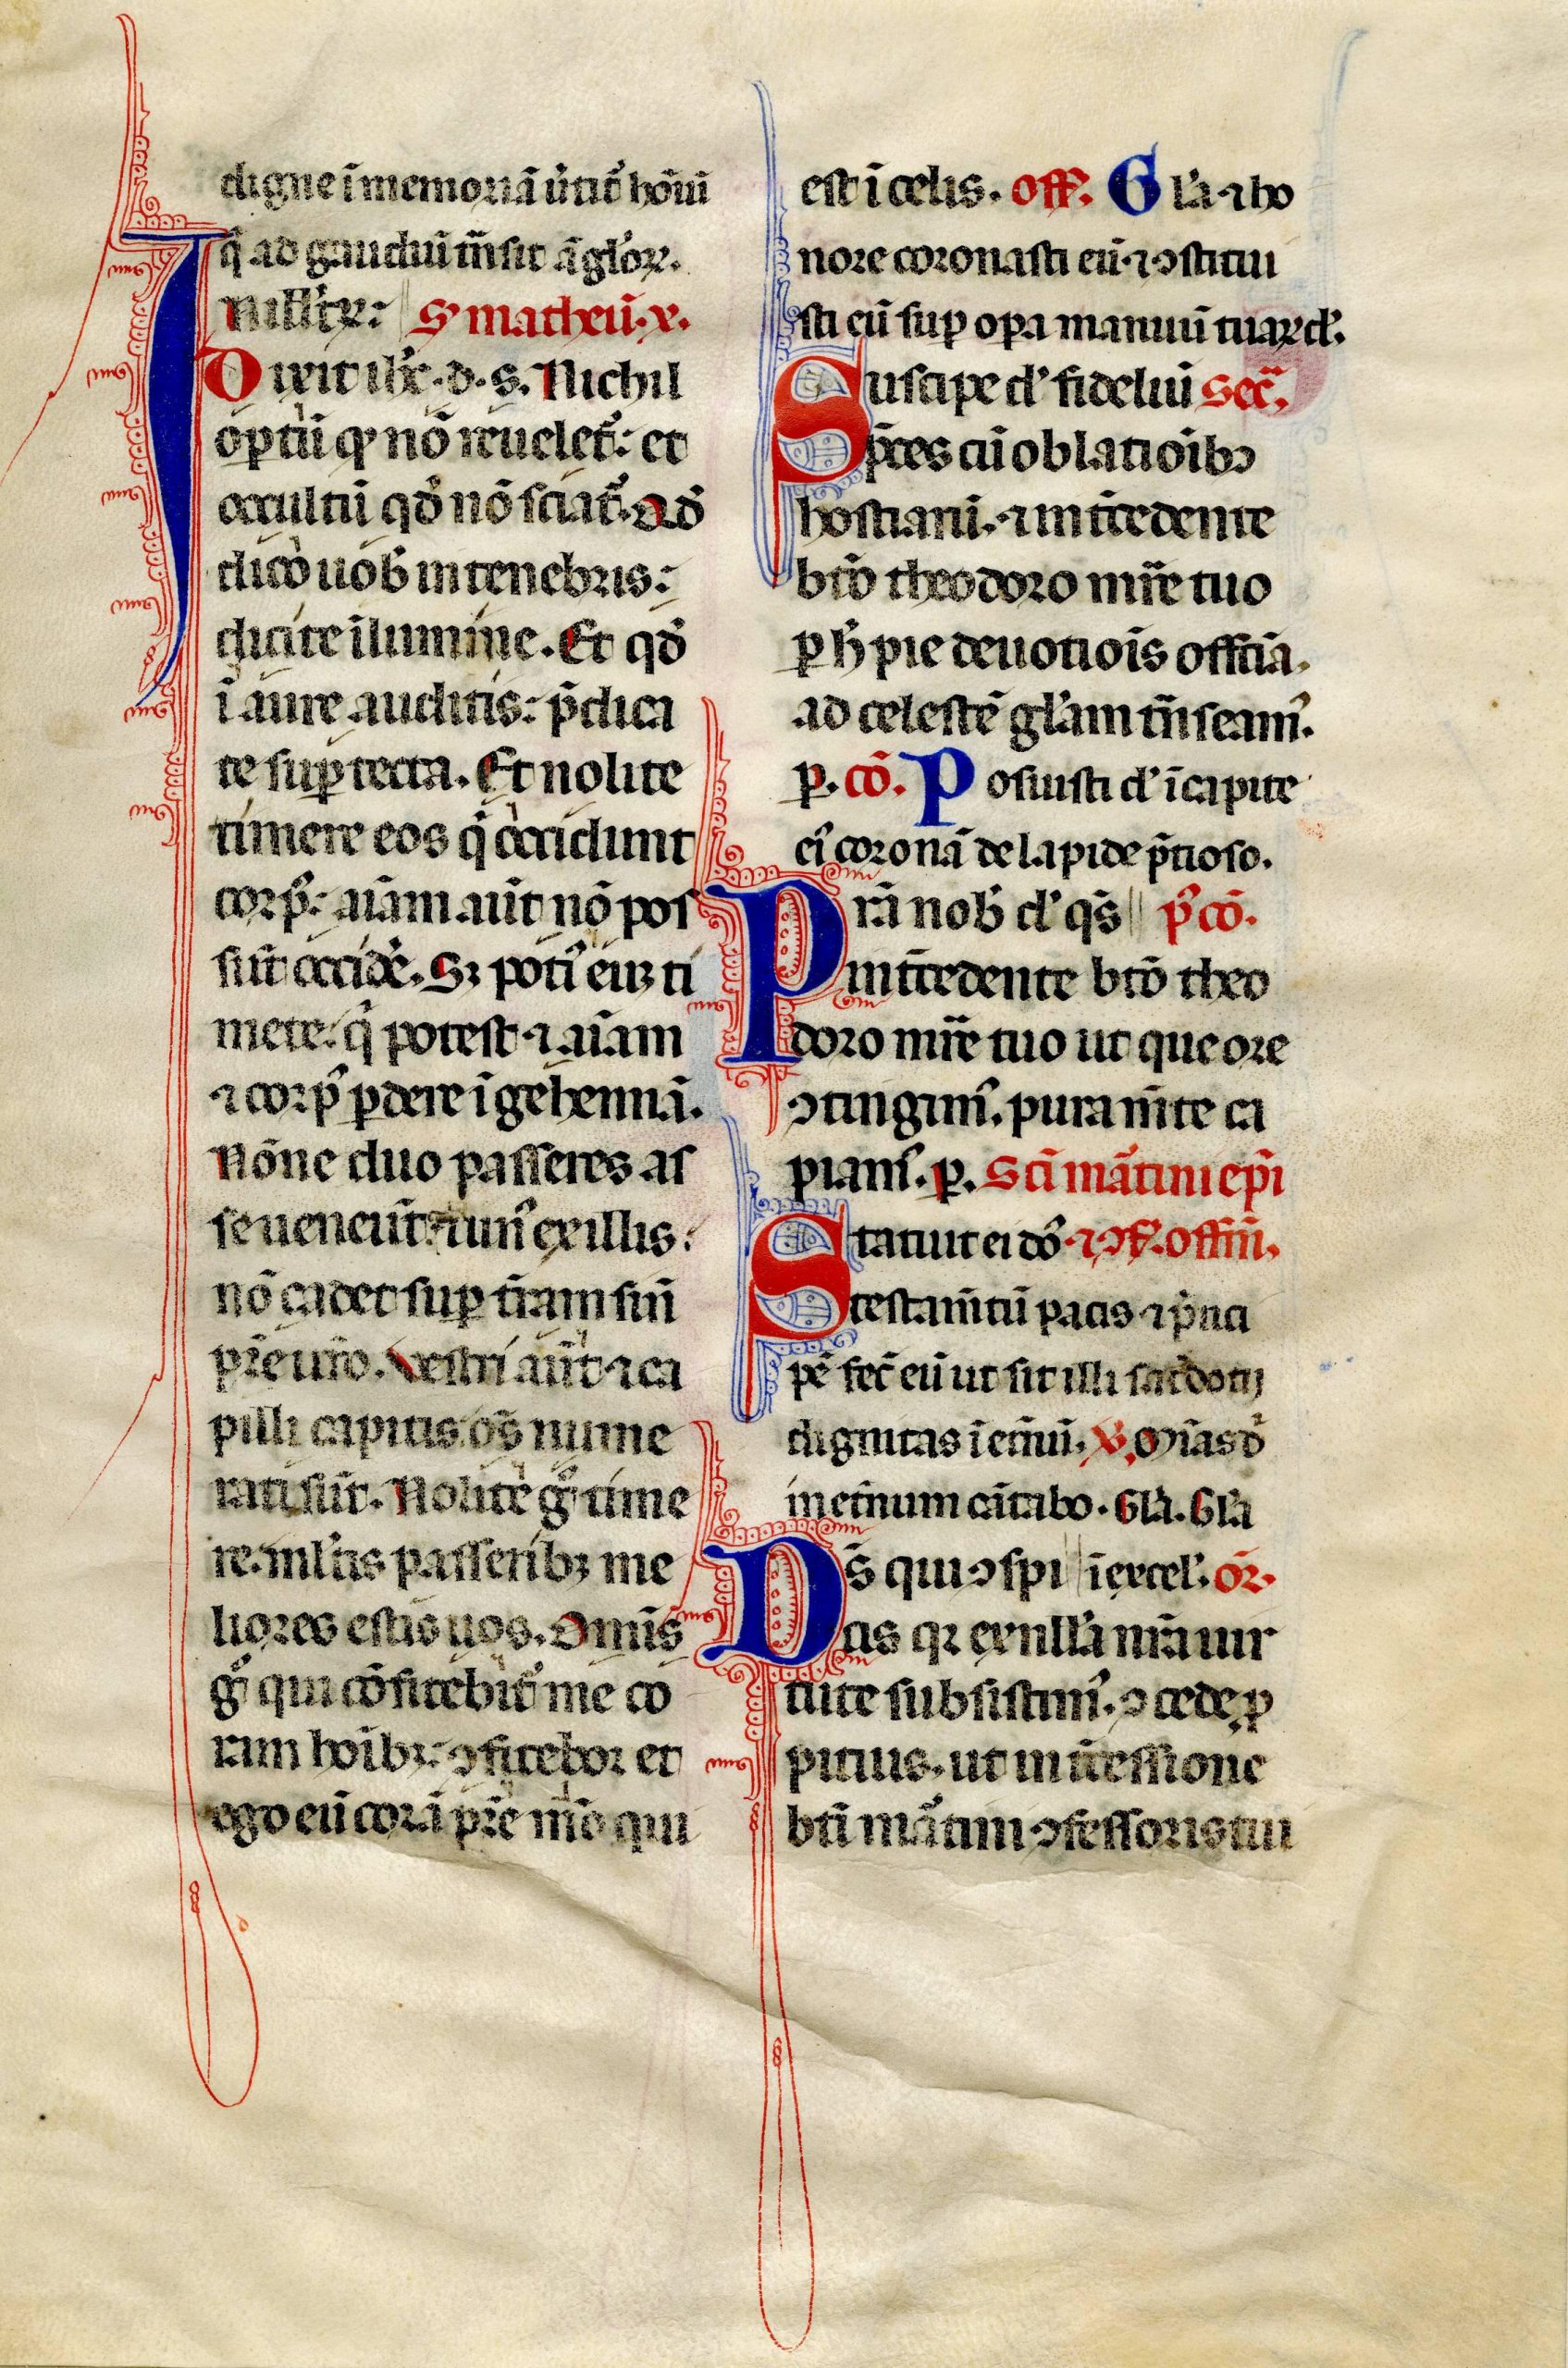 digne ī memoriā ūtit᷒ hōīm
q̄ ad gaudiū tn̄sit āgl᷒oꝝ.
In illo t᷒ꝑ: S᷒ matheū. x.
Dixit ih̄c. d. s. Nichil
oꝑtū qͥ nō reuelet᷒: et
occultū qd̄ nō sciat᷒. Qd̄
dico uob᷒ in tenebris:
dicite ī lumine. Et qd̄
ī aure auditis: p̄dica
te suꝑ tecta. Et nolite
timere eos q̄ occidunt
corp᷒: aīam aūt nō pos
sūt occid᷒e. Sꝫ poti᷒ eūꝫ ti
mete: q̄ potest ⁊ aīam
⁊ corp᷒ ꝑdere ī gehennā.
Nōne duo passeres as
se ueneūt: ⁊ un᷒ ex illis:
nō cadet suꝑ tr̄am sin̄
pr̄e ur̄o. Vestri aūt ⁊ ca
pilli capitis oс̄ nume
rati sūt. Nolite gͦ time
re. ml᷒tis passeribꝫ me
liores estis uos. Omīs
gͦ qui cōfitebit᷒ me co
ram hoībꝫ: ꝯfitebor et
ego eū corā pr̄e m̄o qui
est ī celis. off. Gl᷒a ⁊ ho
nore coronasti eū ⁊ ꝯstitu
isti eū suꝑ oꝑa manuū tuaꝝ d᷒.
Suscipe d᷒ fideliū Sec̄.
p̄ces cū oblatioībꝫ
hostiaꝝ. ⁊ int̄cedente
bt̄o theodoro mr̄e tuo
ꝑ h̄ pie deuotiōis offcia.
ad celestē gl᷒am tn̄seam᷒.
ꝑ. cō. Posuisti d᷒ ī capite
ei᷒ coronā de lapide p̄tioso.
Prā nob᷒ d᷒ qс̄ p᷒ cō.
int̄cedente bt̄o theo
doro mr̄e tuo ut que ore
ꝯtingim᷒. pura m̄te ca
piam᷒. ꝑ. Sc̄i mātini ep̄i
Statuit ei dō᷒ ⁊ ꝯf. offin̄.
testam̄tū pacis ⁊ pͥnci
pē fec̄ eū ut sit illi sac̄dotij
dignitas ī et̄nū. v. Mīas d̄
in et̄num cātabo. Gl᷒a. Gl᷒a
Ds̄ qui ꝯspi ī excel᷒. or̄.
cis qꝛ ex nll᷒a nr̄a uir
tute subsistim᷒. ꝯcede ꝓ
pitius. ut int̄cessione
bt̄i mātini ꝯfessoris tui